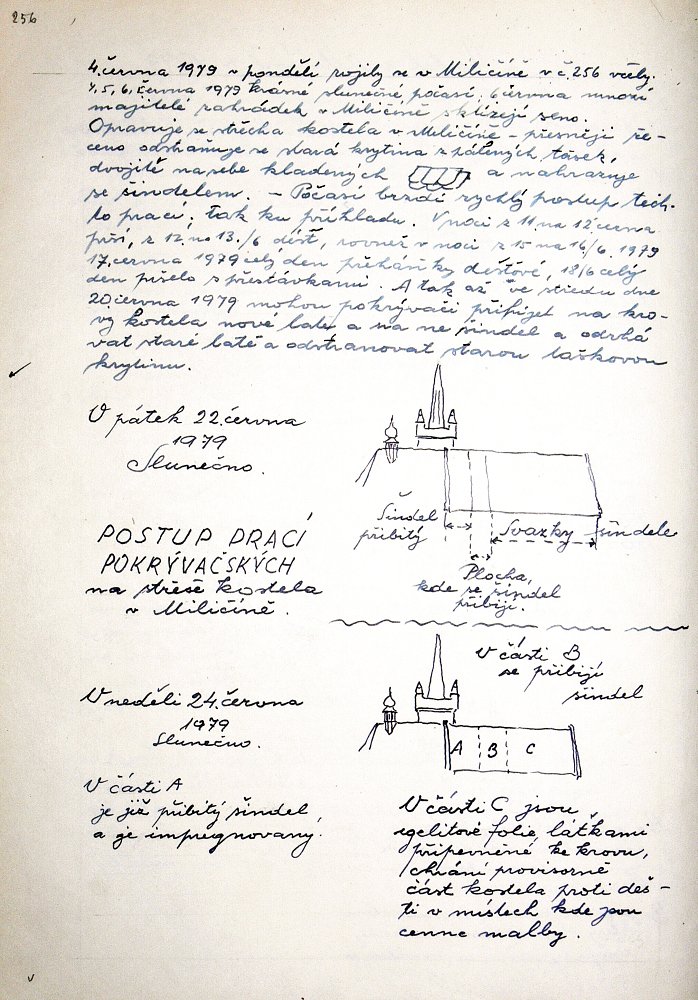 256
4. června 1979 v pondělí rojily se v Miličíně v č. 256 včely.
4, 5, 6, června 1979 krásné slunečné počasí, 6 června mnozí
majitelé zahrádek v Miličíně sklízejí seno.
Opravuje se střecha kostela v Miličíně – přesněji ře-
čeno odstraňuje se stará krytina z pálených tašek,
dvojitě na sebe kladených a nahrazuje
se šindelem. – Počasí brzdí rychlý postup těch-
to prací; tak ku příkladu. V noci z 11 na 12 června
prší, z 12. na 13./6 déšť, rovněž v noci z 15 na 16/6. 1979
17. června 1979 celý den přeháňky dešťové, 18/6 celý
den pršelo s přestávkami. A tak až ve středu dne
20. června 1979 mohou pokrývači přibíjet na kro-
vy kostela nové latě a na ně šindel a odrhá
vat staré latě a odstranovat starou taškovou
krytinu.
V pátek 22. června
1979
Slunečno.
Šindel
přibitý
Svazky šindele
Plocha,
kde se šindel
přibíjí.
POSTUP PRACÍ
POKRÝVAČSKÝCH
na střeše kostela
v Miličíně.
V části B
se přibíjí
šindel
V neděli 24. června
1979
Slunečno.
A B C
V části A
je již přibitý šindel,
a je impregnovaný.
V části C jsou
igelitové folie, láťkami
připevněné ke krovu,
chrání provisorně
část kostela proti deš-
ti v místech kde jsou
cenné malby.